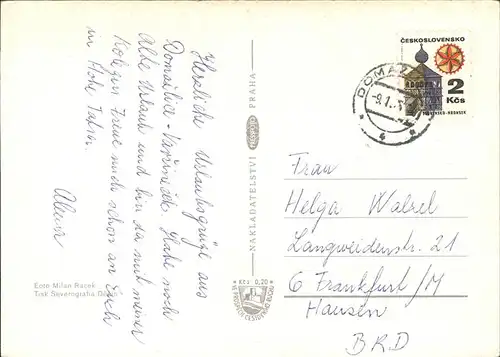 Herzliche Urlaubsgrüße aus
Domažlice - Habe noch
Alte Urlaub und bin da mit meiner
Kolegin Freue mich schon an Euch
in Hohe Tatra.
Foto Milan Racek
Tisk Severografia Děčín
NAKLADATELSTVÍ PRAHA
Kčs 0,20
ČESKOSLOVENSKO
2
Kčs
DOMAŽ
-9.1.
Frau
Helga Walzel
Langweidenstr. 21
6 Frankfurt/M
Hausen
BRD